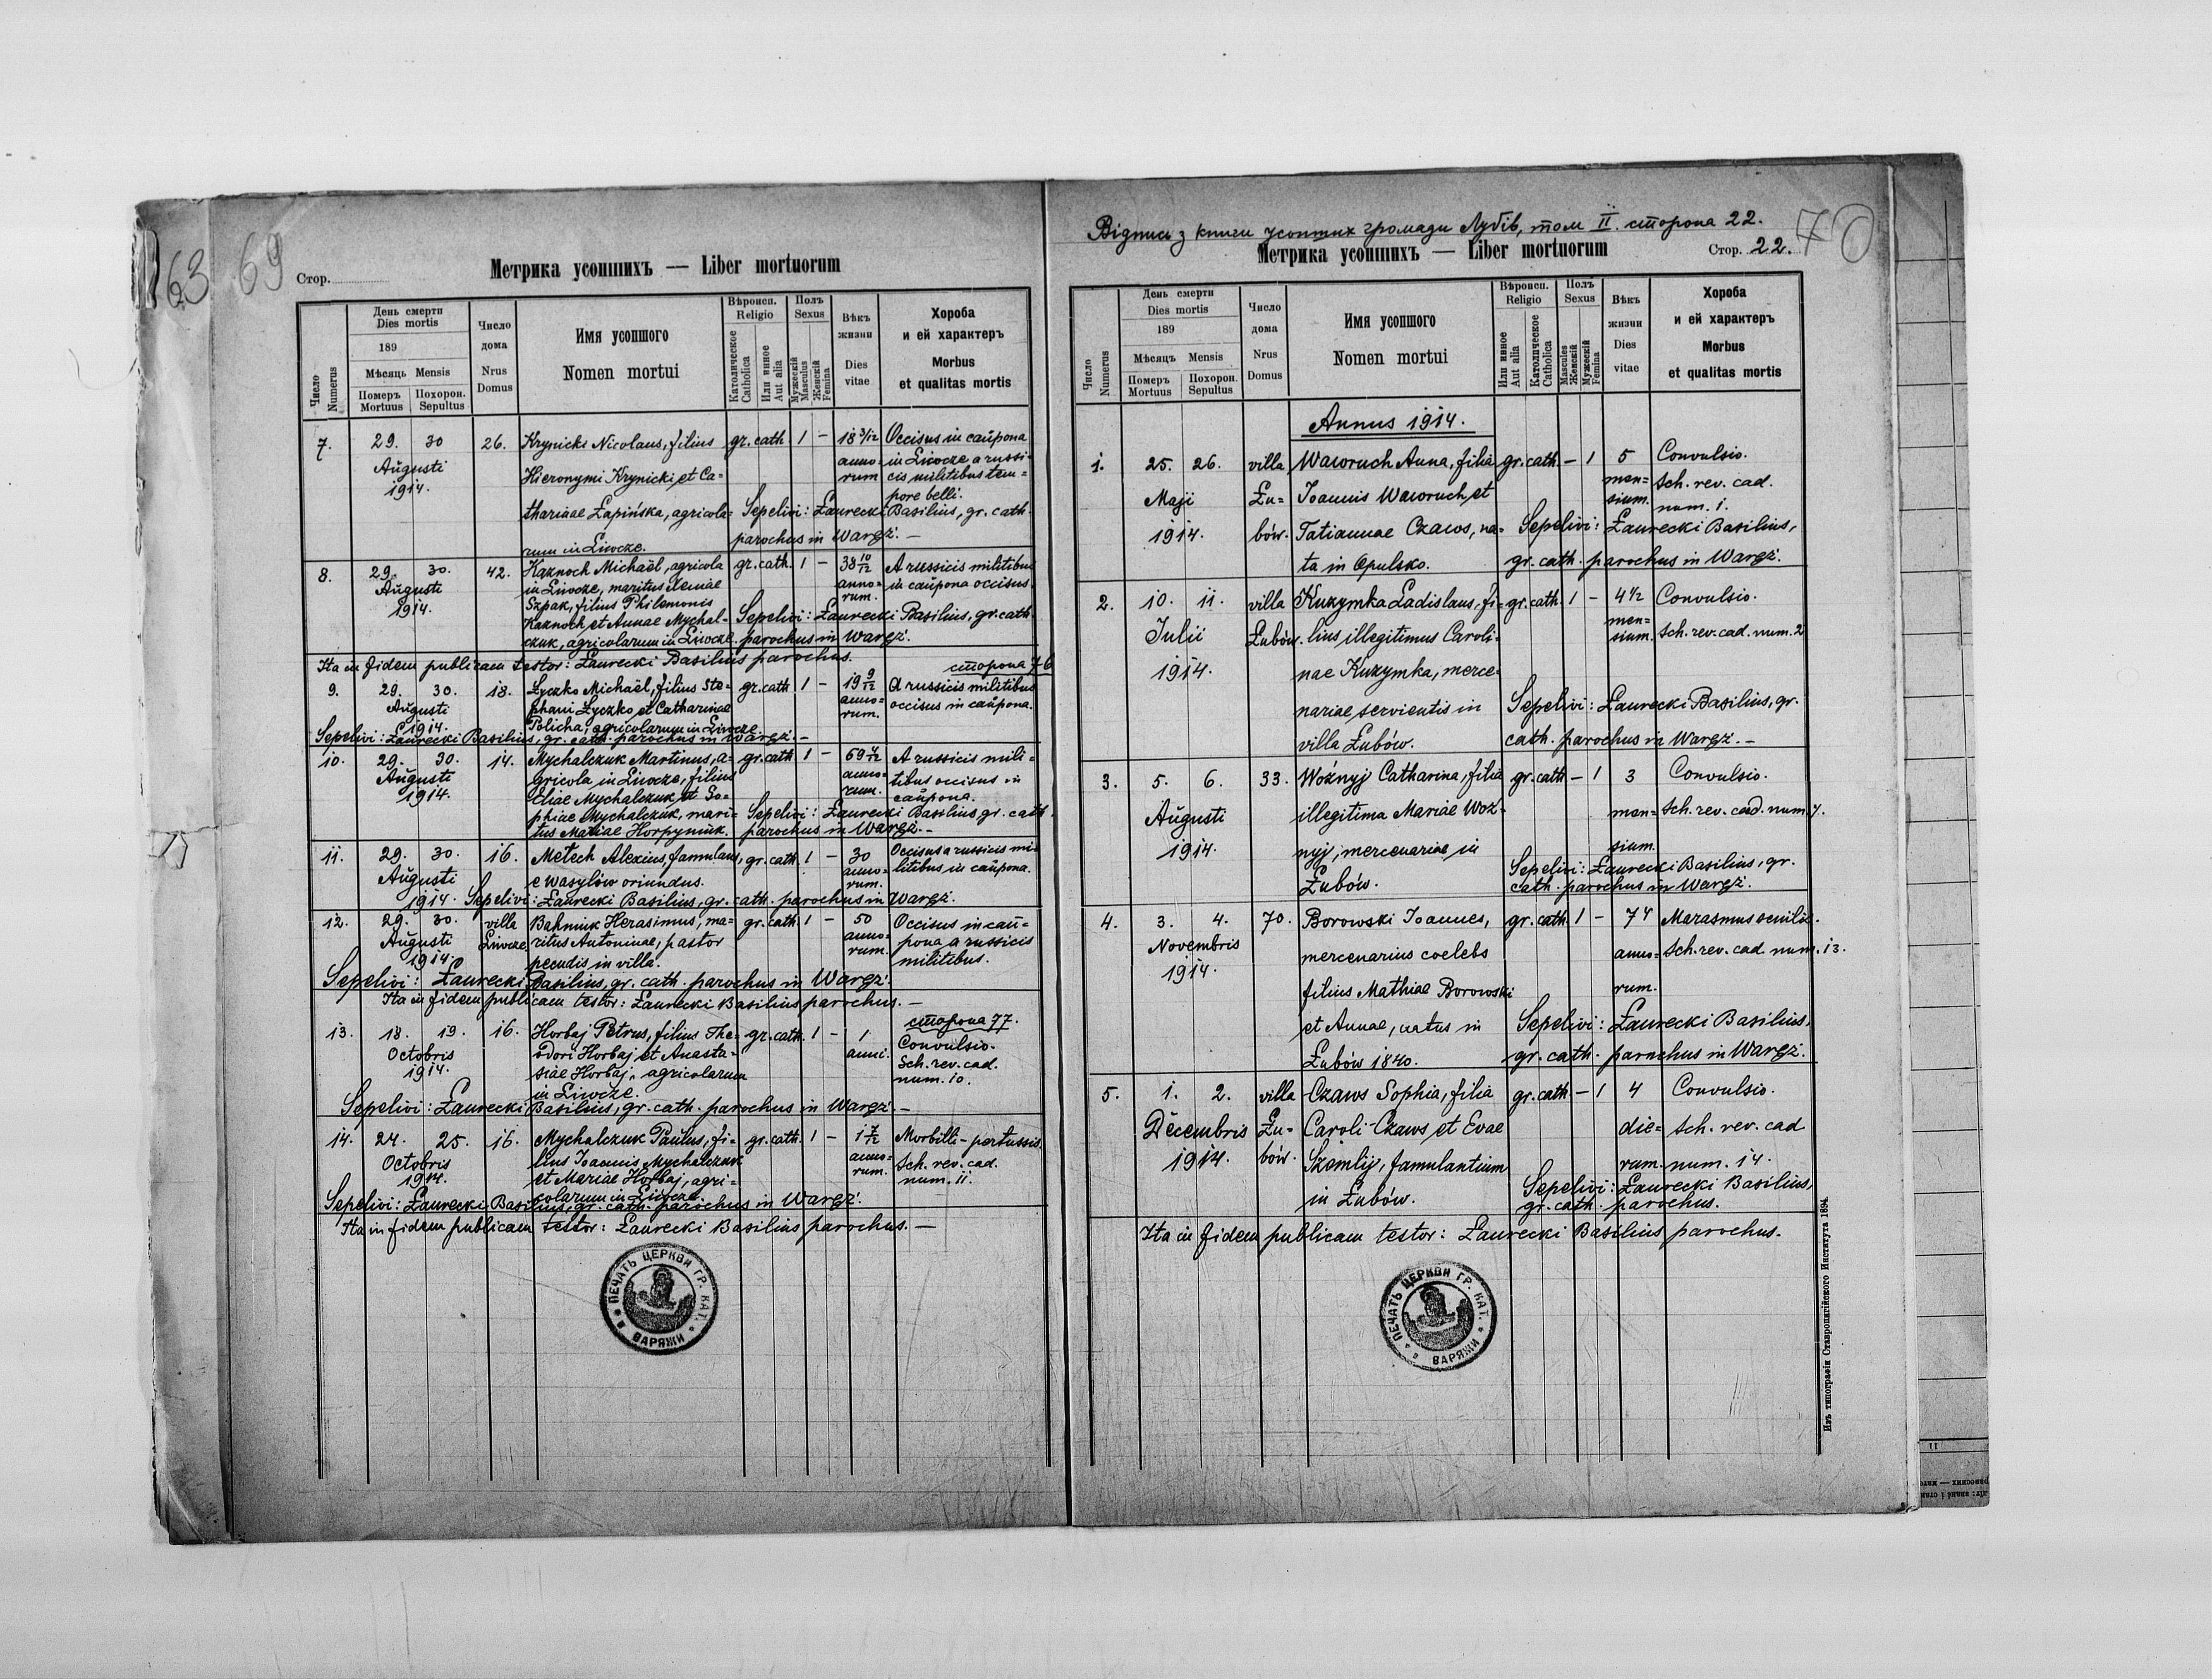 63 69
Стор.
Метрика усопшихъ — Liber mortuorum
Число Numerus
День смерти Dies mortis
189
Мѣсяць Mensis
Померъ Mortuus
Похорон. Sepultus
Число дома Nrus Domus
Имя усопшого Nomen mortui
Вѣроисп. Religio
Католическое Catholica
Или инное Aut alia
Полъ Sexus
Мужескій Masculus
Женскій Femina
Вѣкъ жизни Dies vitae
Хороба и ей характеръ
Morbus et qualitas mortis
7. 29. 30 26. Krynicki Nicolaus, filius gr. cath. 1 – 18 3/12 Occisus in caŭpona
Augusti Hieronymi Krynicki et Ca= anno= in Liwcze a russi=
1914. thariae Łapińska, agricola= rum cis militibus tem=
rum in Liwcze. pore belli.
Sepelivi: Ławrecki Basilius, gr. cath.
parochus in Waręż. —
8. 29. 30. 42. Kaznoch Michaël, agricola gr. cath. 1 – 38 10/12 A russicis militibus
Augusti in Liwcze, maritus anno= in caŭpona occisus.
1914. Szpak, filius Philemonis rum.
Kaznoch et Annae Mychal= Sepelivi: Ławrecki Basilius, gr. cath.
czuk, agricolarum in Liwcze. parochus in Waręż.
Ita in fidem publicam testor: Ławrecki Basilius parochus.
сторона 76
9. 29. 30. 18. Łyczko Michaël, filius Ste= gr. cath. 1 – 19 9/12 A russicis militibus
Augusti phani Łyczko et Catharinae anno= occisus in caŭpona.
1914. Policha, agricolarum in Liwcze. rum.
Sepelivi: Ławrecki Basilius, gr. cath. parochus in Waręż. —
10. 29. 30. 14. Mychalczuk Martinus, a= gr. cath. 1 – 69 A russicis mili=
Augusti gricola in Liwcze, filius anno= tibus occisus in
1914. Eliae Mychalczuk et So= rum. caŭpona.
phiae Mychalczuk, mari= Sepelivi: Ławrecki Basilius gr. cath.
tus Mariae Horpyniuk. parochus in Waręż. –
11. 29. 30. 16. Metech Alexius, famulans, gr. cath. 1 – 30 Occisus a russicis mi=
Augusti e Wasylów oriundus. anno= litibus in caŭpona.
1914. rum.
Sepelivi: Ławrecki Basilius, gr. cath. parochus in Waręż.
12. 29. 30. villa Bahniuk Herasimus, ma= gr. cath. 1 – 50 Occisus in caŭ=
Augusti Liwcze ritus Antoninae, pastor anno= pona a russicis
1914. pecudis in villa. rum. militibus.
Sepelivi: Ławrecki Basilius, gr. cath. parochus in Waręż.
Ita in fidem publicam testor: Ławrecki Basilius parochus. —
сторона 77.
13. 18. 19. 16. Horbaj Petrus, filius The= gr. cath. 1 – 1 Convulsio.
Octobris odori Horbaj et Anasta= anni. Sch. rev. cad.
1914. siae Horbaj, agricolarum num. 10.
in Liwcze.
Sepelivi: Ławrecki Basilius, gr. cath. parochus in Waręż. —
14. 24. 25. 16. Mychalczuk Paŭlus, fi= gr. cath. 1 – 1 7/12 Morbilli – pertussis.
Octobris lius Joannis Mychalczuk anno= Sch. rev. cad.
1914. et Mariae Horbaj, agri= rum. num. 11.
colarum in Liwcze.
Sepelivi: Ławrecki Basilius, gr. cath. parochus in Waręż.
Ita in fidem publicam testor: Ławrecki Basilius parochus. —
ПЕЧАТЬ ЦЕРКВИ ГР. КАТ. В ВАРЯЖИ
Відпись з книги усопших громади Лубів, том II. сторона 22.
70
Метрика усопшихъ — Liber mortuorum
Стор. 22.
Число Numerus
День смерти Dies mortis
189
Мѣсяцъ Mensis
Померъ Mortuus
Похорон. Sepultus
Число дома Nrus Domus
Имя усопшого Nomen mortui
Вѣроисп. Religio
Или инное Aut alia
Католическое Catholica
Полъ Sexus
Masculus Женскій
Мужескій Femina
Вѣкъ жизни Dies vitae
Хороба и ей характеръ
Morbus et qualitas mortis
Annus 1914.
1. 25. 26. villa Waworuch Anna, filia gr. cath. – 1 5 Convulsio.
Maji Łu= Joannis Waworuch et men= Sch. rev. cad.
1914. bów. Tatiannae Czaws, na= sium. num. 1.
ta in Opulsko. Sepelivi: Ławrecki Basilius,
gr. cath. parochus in Waręż.
2. 10. 11. villa Kuzymka Ladislaus, fi= gr. cath. 1 – 4 1/2 Convulsio.
Julii Łubów. lius illegitimus Caroli= men= Sch. rev. cad. num. 2
1914. nae Kuzymka, merce= sium.
nariae servientis in Sepelivi: Ławrecki Basilius, gr.
villa Łubów. cath. parochus in Waręż. –
3. 5. 6. 33. Woźnyj Catharina, filia gr. cath. – 1 3 Convulsio.
Augusti illegitima Mariae Woź= men= Sch. rev. cad. num. 7.
1914. nyj, mercenariae in sium.
Łubów. Sepelivi: Ławrecki Basilius, gr.
cath. parochus in Waręż.
4. 3. 4. 70. Borowski Joannes, gr. cath. 1 – 74 Marasmus senilis.
Novembris mercenarius coelebs anno= Sch. rev. cad. num. 13.
1914. filius Mathiae Borowski rum.
et Annae, natus in Sepelivi: Ławrecki Basilius,
Łubów 1840. gr. cath. parochus in Waręż.
5. 1. 2. villa Czaws Sophia, filia gr. cath. – 1 4 Convulsio.
Decembris Łu= Caroli Czaws et Evae die= Sch. rev. cad
1914. bów. Szemlij, famulantium rum. num. 14.
in Łubów. Sepelivi: Ławrecki Basilius,
gr. cath. parochus.
Ita in fidem publicam testor: Ławrecki Basilius parochus.
ПЕЧАТЬ ЦЕРКВИ ГР. КАТ. В ВАРЯЖИ
Изъ типографіи Ставропигійского Института 1894
11